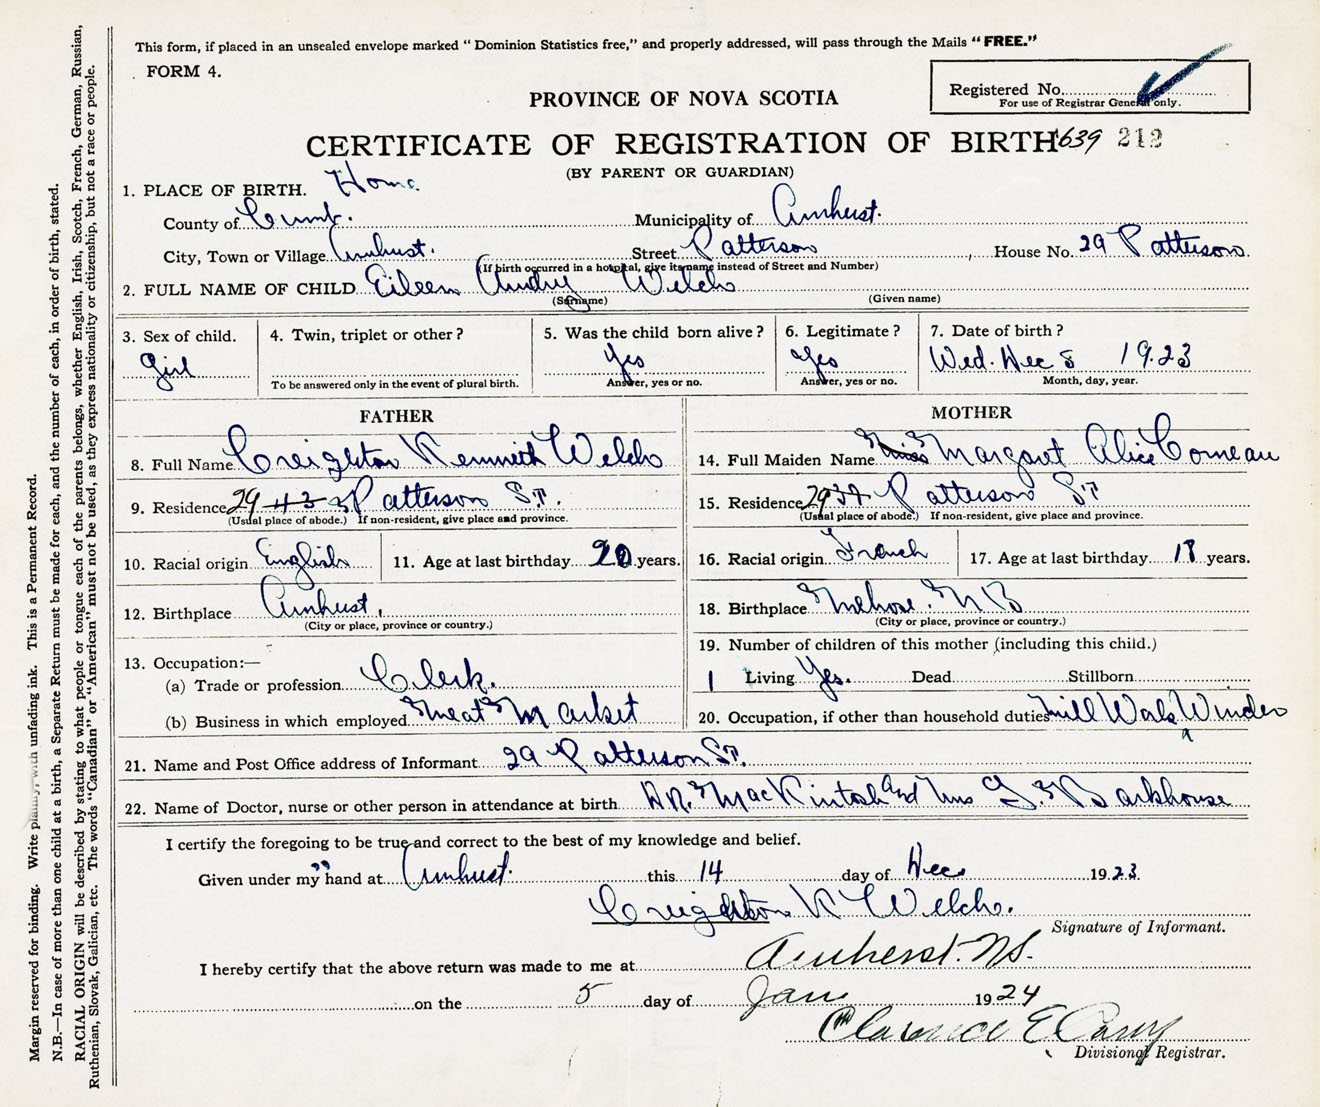 This form, if placed in an unsealed envelope marked "Dominion Statistics free," and properly addressed, will pass through the Mails "FREE."
FORM 4.
Registered No.
For use of Registrar General only.
PROVINCE OF NOVA SCOTIA
CERTIFICATE OF REGISTRATION OF BIRTH 1639 212
(BY PARENT OR GUARDIAN)
1. PLACE OF BIRTH. Home
County of Cumb. Municipality of Amherst.
City, Town or Village Amherst. Street Patterson House No. 29 Patterson
(If birth occurred in a hospital, give its name instead of Street and Number)
2. FULL NAME OF CHILD Eileen Audry Welch
(Surname) (Given name)
3. Sex of child. 4. Twin, triplet or other? 5. Was the child born alive? 6. Legitimate? 7. Date of birth?
Girl Yes Yes Wed. Dec 8 1923
To be answered only in the event of plural birth. Answer, yes or no. Answer, yes or no. Month, day, year.
FATHER MOTHER
8. Full Name Creighton Kenneth Welch 14. Full Maiden Name Miss Margaret Alice Comeau
9. Residence 29 43 Patterson St. 15. Residence 29 37 Patterson St
(Usual place of abode.) If non-resident, give place and province. (Usual place of abode.) If non-resident, give place and province.
10. Racial origin English 11. Age at last birthday 20 years. 16. Racial origin French 17. Age at last birthday 18 years.
12. Birthplace Amherst, 18. Birthplace Melrose. N B
(City or place, province or country.) (City or place, province or country.)
13. Occupation:— 19. Number of children of this mother (including this child.)
(a) Trade or profession Clerk. 1 Living Yes. Dead Stillborn
(b) Business in which employed Meat Market 20. Occupation, if other than household duties Mill Work Winder
21. Name and Post Office address of Informant 29 Patterson St.
22. Name of Doctor, nurse or other person in attendance at birth DR. MacKintosh and Mrs G. B Barkhouse
I certify the foregoing to be true and correct to the best of my knowledge and belief.
Given under my hand at Amherst. this 14 day of Dec 1923.
Creighton K Welch.
Signature of Informant.
I hereby certify that the above return was made to me at Amherst. N.S.
on the 5 day of Jan 1924
Clarence E Casey
Divisional Registrar.
Margin reserved for binding. Write plainly, with unfading ink. This is a Permanent Record.
N.B.—In case of more than one child at a birth, a Separate Return must be made for each, and the number of each, in order of birth, stated.
RACIAL ORIGIN will be described by stating to what people or tongue each of the parents belongs, whether English, Irish, Scotch, French, German, Russian,
Ruthenian, Slovak, Galician, etc. The words "Canadian" or "American" must not be used, as they express nationality or citizenship, but not a race or people.